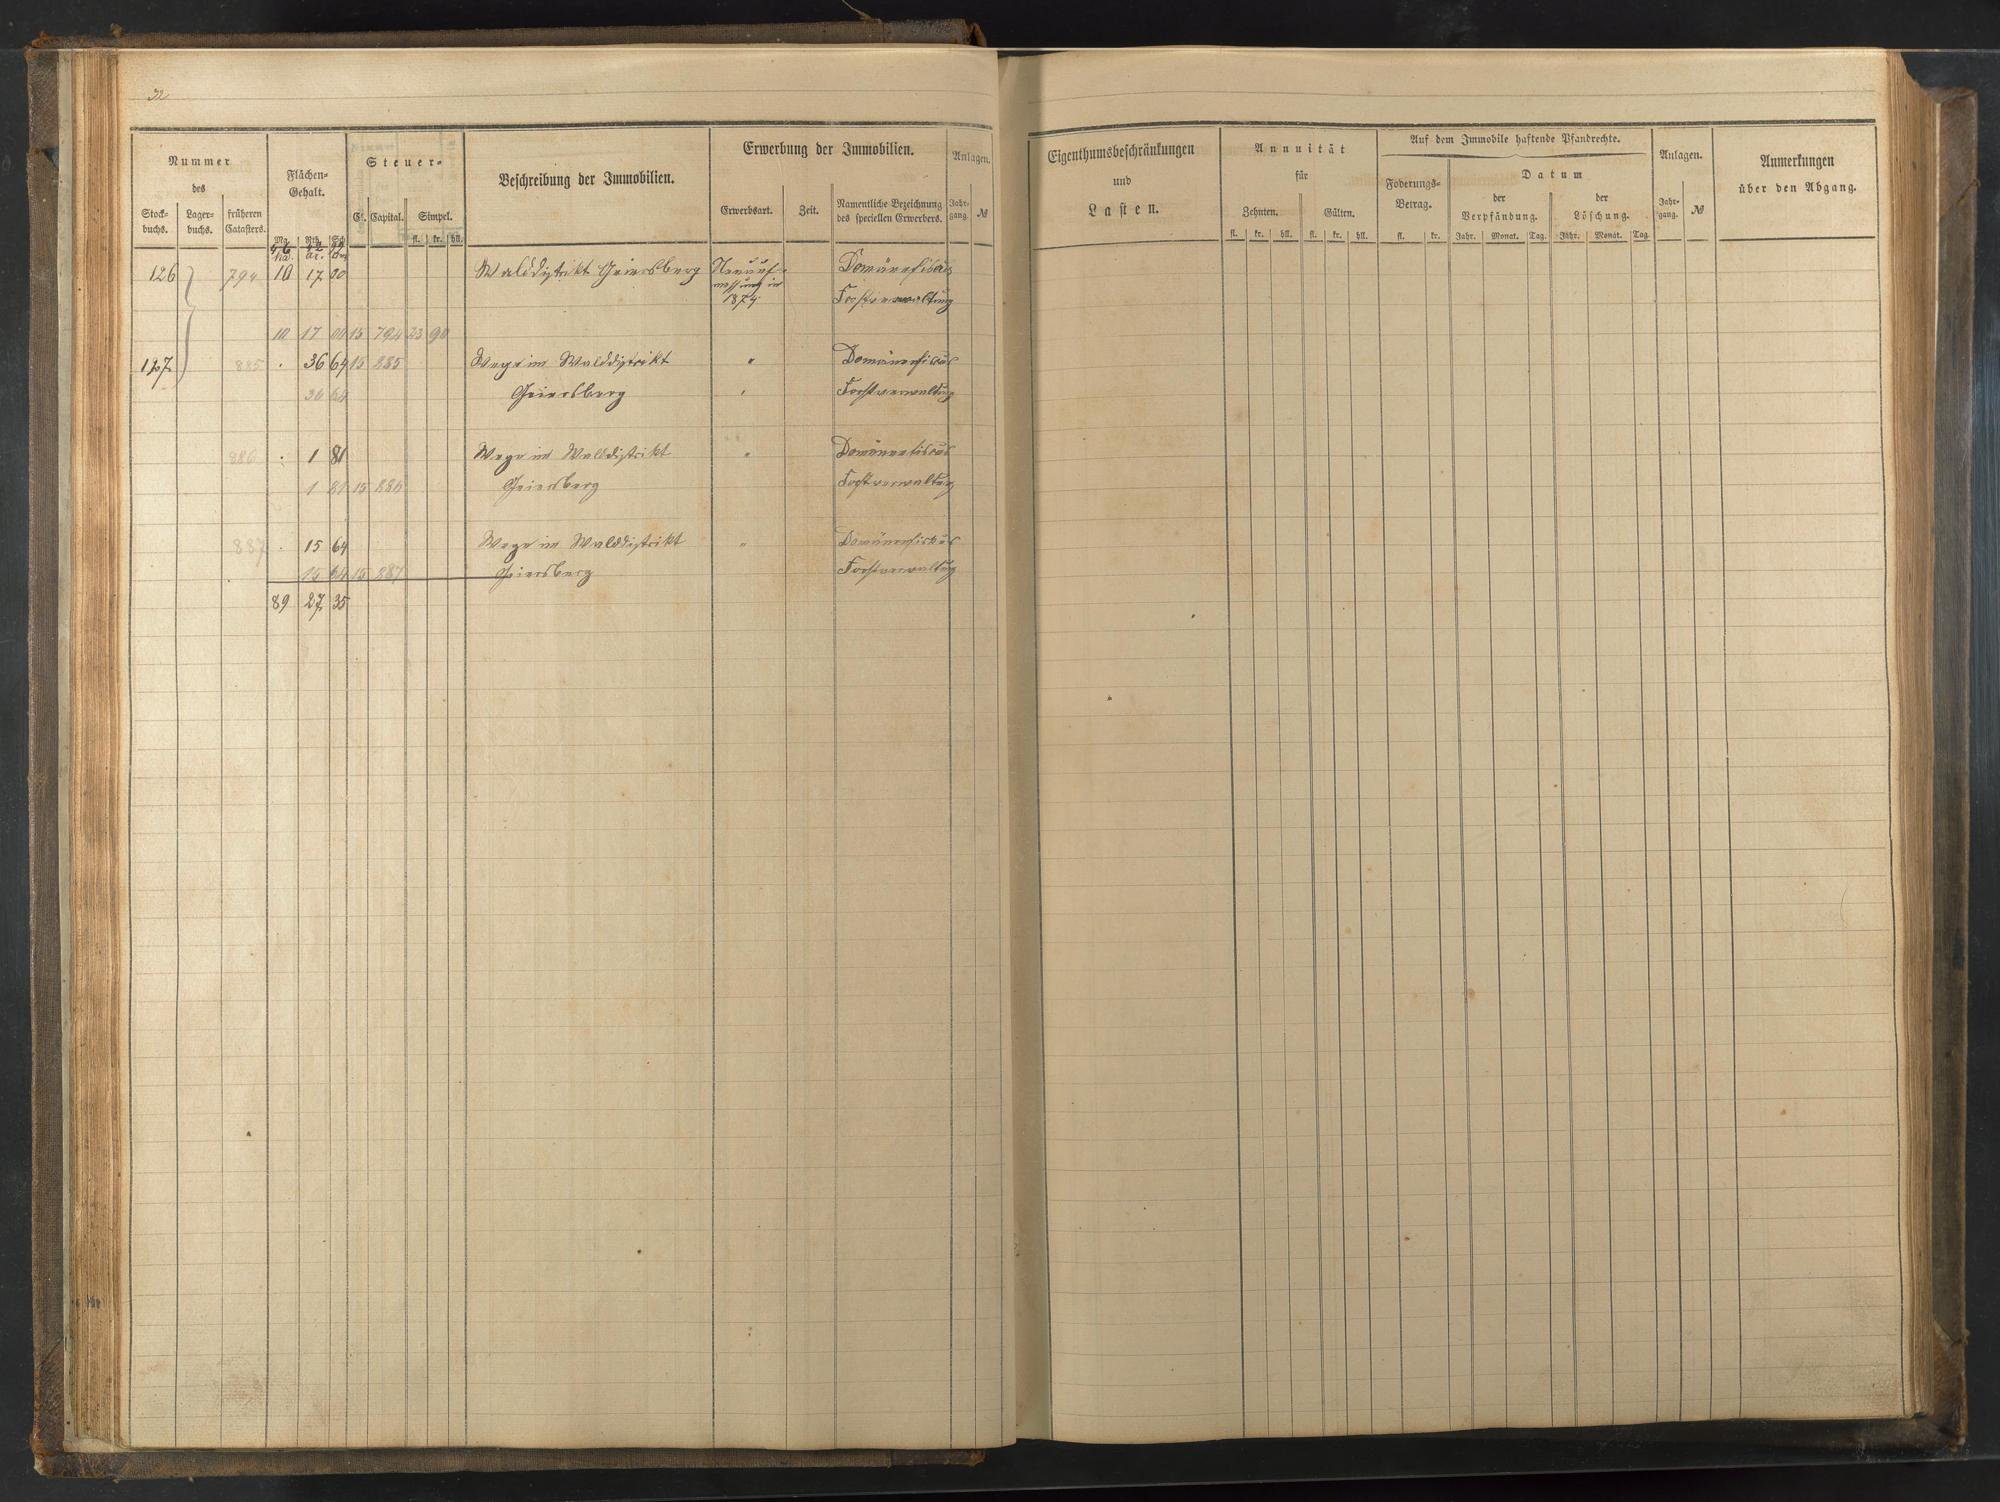 32
Nummer des
Stock-buchs. Lager-buchs. früheren Catasters.
Flächen-Gehalt.
Mg. Rth. Sch.
ha. ar. qm
Steuer-
Cl. Capital. Simpel.
fl. kr. hll.
Beschreibung der Immobilien.
Erwerbung der Immobilien.
Erwerbsart. Zeit. Namentliche Bezeichnung des speciellen Erwerbers.
Anlagen.
Jahr-gang. №
126 794 10 17 00 Walddistrikt Geiersberg Neuver- Domänefiscus
messung in
1874. Forstverwaltung
10 17 00 15 794 23 90
127 885 . 36 64 15 885 Wege im Walddistrikt " Domänefiscus
36 64 Geiersberg " Forstverwaltung
886 . 1 81 Wege im Walddistrikt " Domänefiscus
1 81 15 886 Geiersberg Forstverwaltung
887 . 15 64 Wege im Walddistrikt " Domänefiscus
15 64 15 887 Geiersberg Forstverwaltung
89 27 35
Eigenthumsbeschränkungen
und
Lasten.
Annuität
für
Zehnten. Gülten.
fl. kr. hll. fl. kr. hll.
Auf dem Immobile haftende Pfandrechte.
Foderungs-Betrag.
fl. kr.
Datum
der Verpfändung. der Löschung.
Jahr. Monat. Tag. Jahr. Monat. Tag
Anlagen.
Jahr-gang. №
Anmerkungen
über den Abgang.